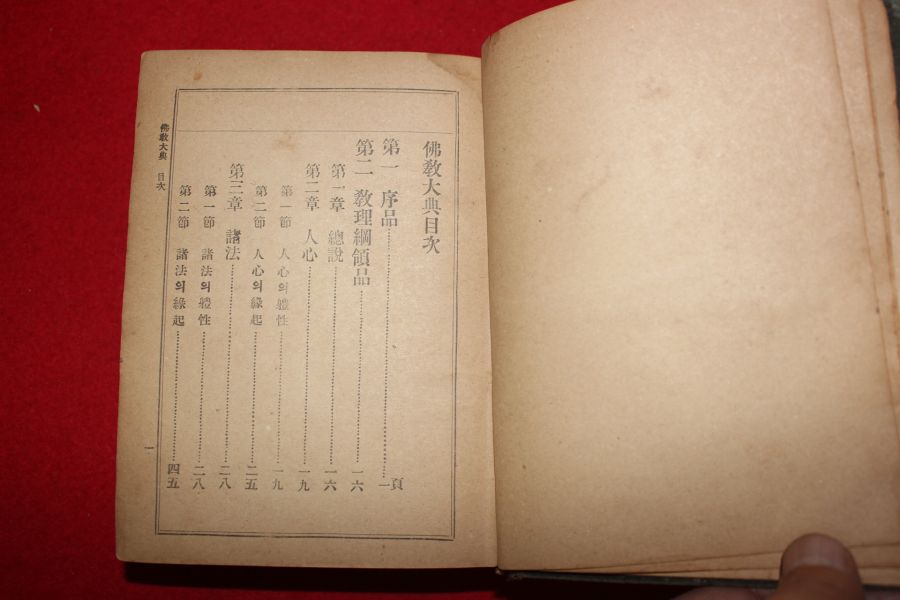 佛敎大典目次
第一 序品 一頁
第二 敎理綱領品 一六
第一章 總說 一六
第二章 人心 一九
第一節 人心의體性 一九
第二節 人心의緣起 二五
第三章 諸法 二八
第一節 諸法의體性 二八
第二節 諸法의緣起 四五
佛敎大典 目次 一